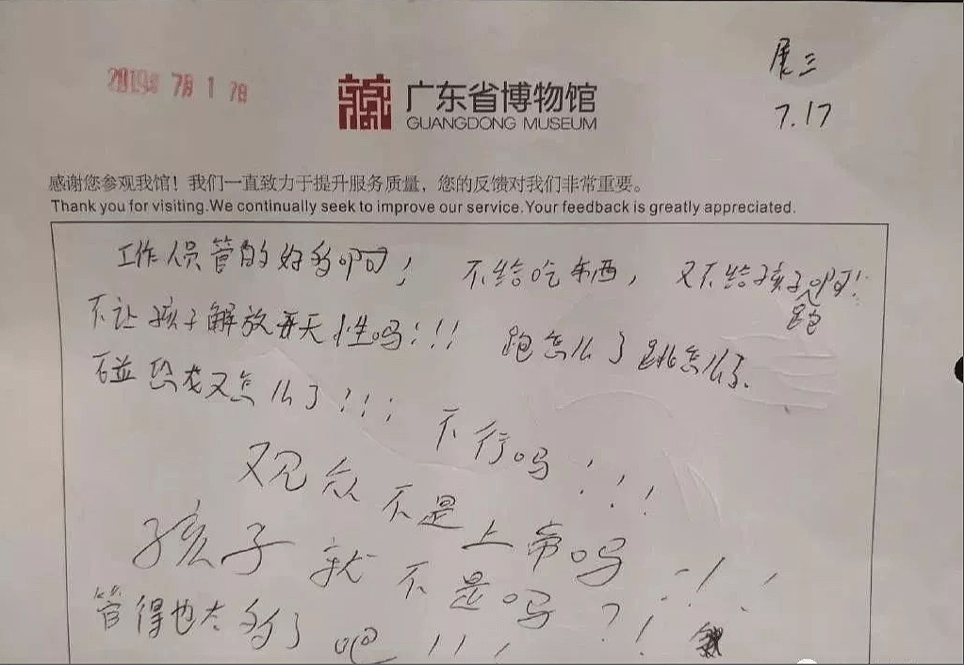 2019年7月17日
展三
7.17
广东省博物馆
GUANGDONG MUSEUM
感谢您参观我馆！我们一直致力于提升服务质量，您的反馈对我们非常重要。
Thank you for visiting.We continually seek to improve our service.Your feedback is greatly appreciated.
工作人员管的好多啊！ 不给吃东西， 又不给孩子跑啊！
不让孩子解放天性吗！！！ 跑怎么了跳怎么了.
碰恐龙又怎么了！！！ 不行吗！！！
观众不是上帝吗！！！
孩子就不是吗？！
管得也太多了吧！！！